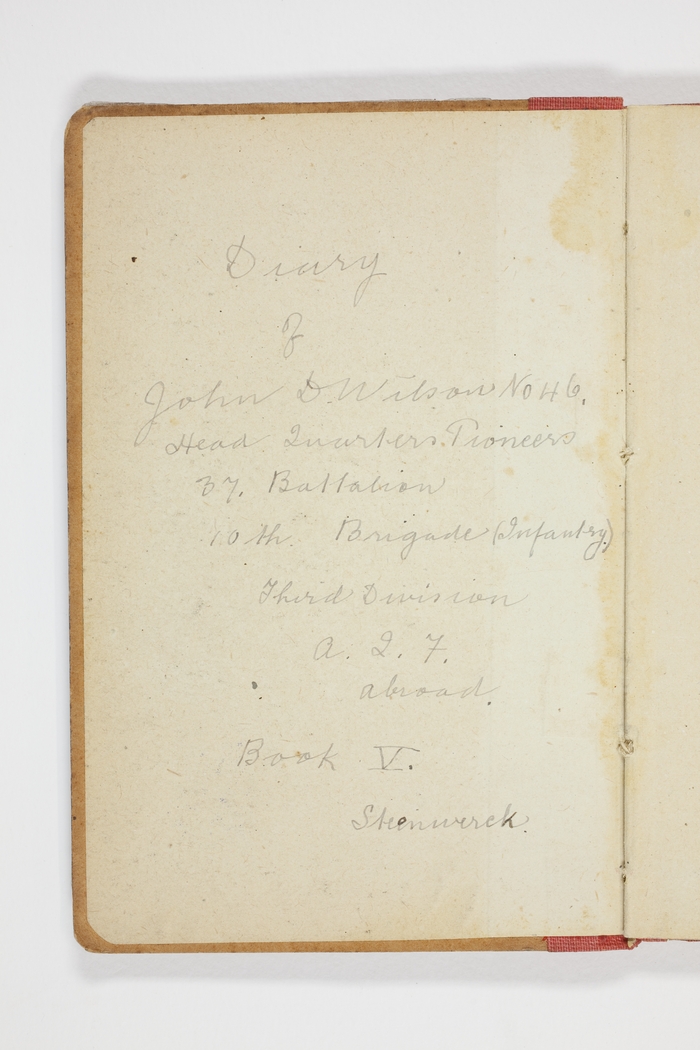 Diary
of
John D. Wilson No 46.
Head Quarters Pioneers
37. Battalion
10th. Brigade (Infantry)
Third Division
A. I. F.
abroad.
Book V.
Steenwerck.